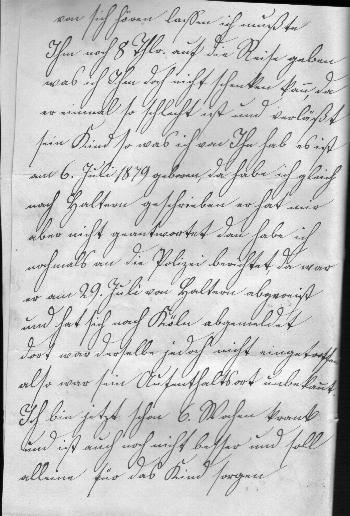 von sich hören lassen ich mußte
Ihm noch 8 Thlr. auf die Reise geben
was ich Ihm doch nicht schenken kann da
er einmal so schlecht ist und verläßt
sein Kind so was ich von Ihn hab es ist
am 6. Juli 1879 geboren, da habe ich gleich
nach Haltern geschrieben er hat mir
aber nicht geantwortet dan habe ich
nochmals an die Polizei berichtet, da war
er am 29. Juli von Haltern abgereist
und hat sich nach Köln abgemeldet
dort war derselbe jedoch nicht eingetroffen
also war sein Aufenthaltsort unbekannt.
Ich bin jetzt schon 6. Wochen krank
und ist auch noch nicht besser und soll
alleine für das Kind sorgen